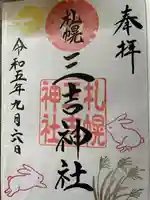 奉拝
札幌
三吉神社
令和五年九月六日
札幌
三吉
神社